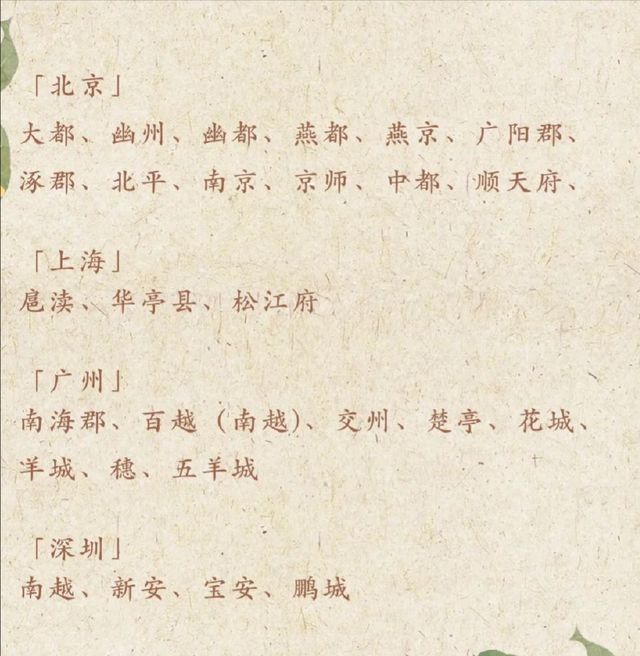 「北京」
大都、幽州、幽都、燕都、燕京、广阳郡、
涿郡、北平、南京、京师、中都、顺天府、
「上海」
扈渎、华亭县、松江府
「广州」
南海郡、百越(南越)、交州、楚亭、花城、
羊城、穗、五羊城
「深圳」
南越、新安、宝安、鹏城